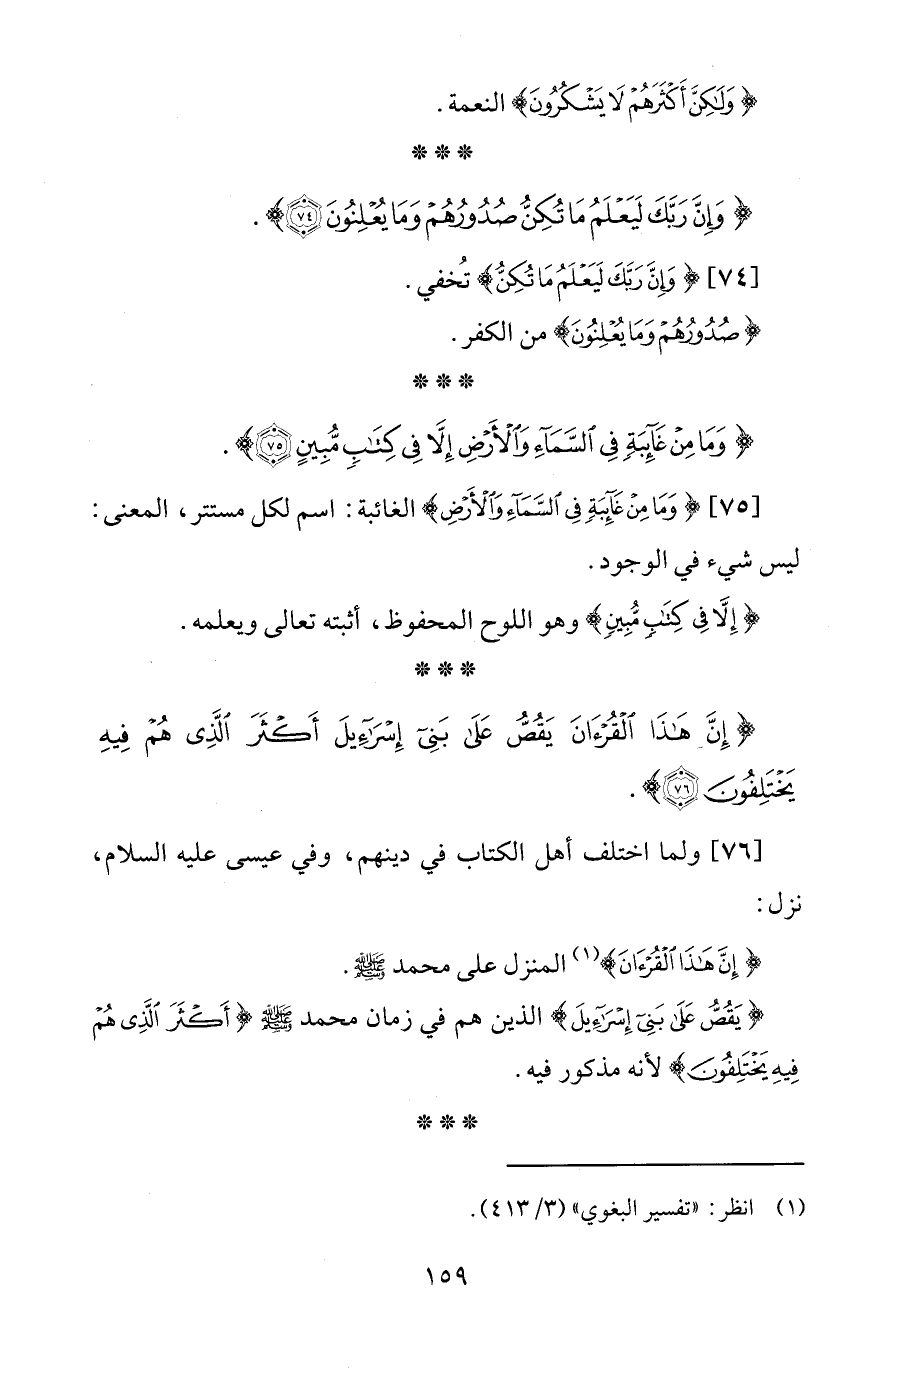 ﴿ وَلَٰكِنَّ أَكْثَرَهُمْ لَا يَشْكُرُونَ﴾ النعمة .
* * *
﴿ وَإِنَّ رَبَّكَ لَيَعْلَمُ مَا تُكِنُّ صُدُورُهُمْ وَمَا يُعْلِنُونَ ٧٤﴾ .
[٧٤] ﴿ وَإِنَّ رَبَّكَ لَيَعْلَمُ مَا تُكِنُّ﴾ تُخفي .
﴿ صُدُورُهُمْ وَمَا يُعْلِنُونَ﴾ من الكفر .
* * *
﴿ وَمَا مِنْ غَآئِبَةٍ فِي ٱلسَّمَآءِ وَٱلْأَرْضِ إِلَّا فِي كِتَٰبٍ مُّبِينٍ ٧٥﴾ .
[٧٥] ﴿ وَمَا مِنْ غَآئِبَةٍ فِي ٱلسَّمَآءِ وَٱلْأَرْضِ﴾ الغائبة : اسم لكل مستتر ، المعنى :
ليس شيء في الوجود .
﴿ إِلَّا فِي كِتَٰبٍ مُّبِينٍ﴾ وهو اللوح المحفوظ ، أثبته تعالى ويعلمه .
* * *
﴿ إِنَّ هَٰذَا ٱلْقُرْءَانَ يَقُصُّ عَلَىٰ بَنِيٓ إِسْرَٰٓءِيلَ أَكْثَرَ ٱلَّذِى هُمْ فِيهِ
يَخْتَلِفُونَ ٧٦﴾ .
[٧٦] ولما اختلف أهل الكتاب في دينهم ، وفي عيسى عليه السلام ،
نزل :
﴿ إِنَّ هَٰذَا ٱلْقُرْءَانَ﴾(١) المنزل على محمد ﷺ .
﴿ يَقُصُّ عَلَىٰ بَنِيٓ إِسْرَٰٓءِيلَ﴾ الذين هم في زمان محمد ﷺ ﴿ أَكْثَرَ ٱلَّذِى هُمْ
فِيهِ يَخْتَلِفُونَ﴾ لأنه مذكور فيه .
* * *
(١) انظر : «تفسير البغوي» (٣/ ٤١٣) .
١٥٩